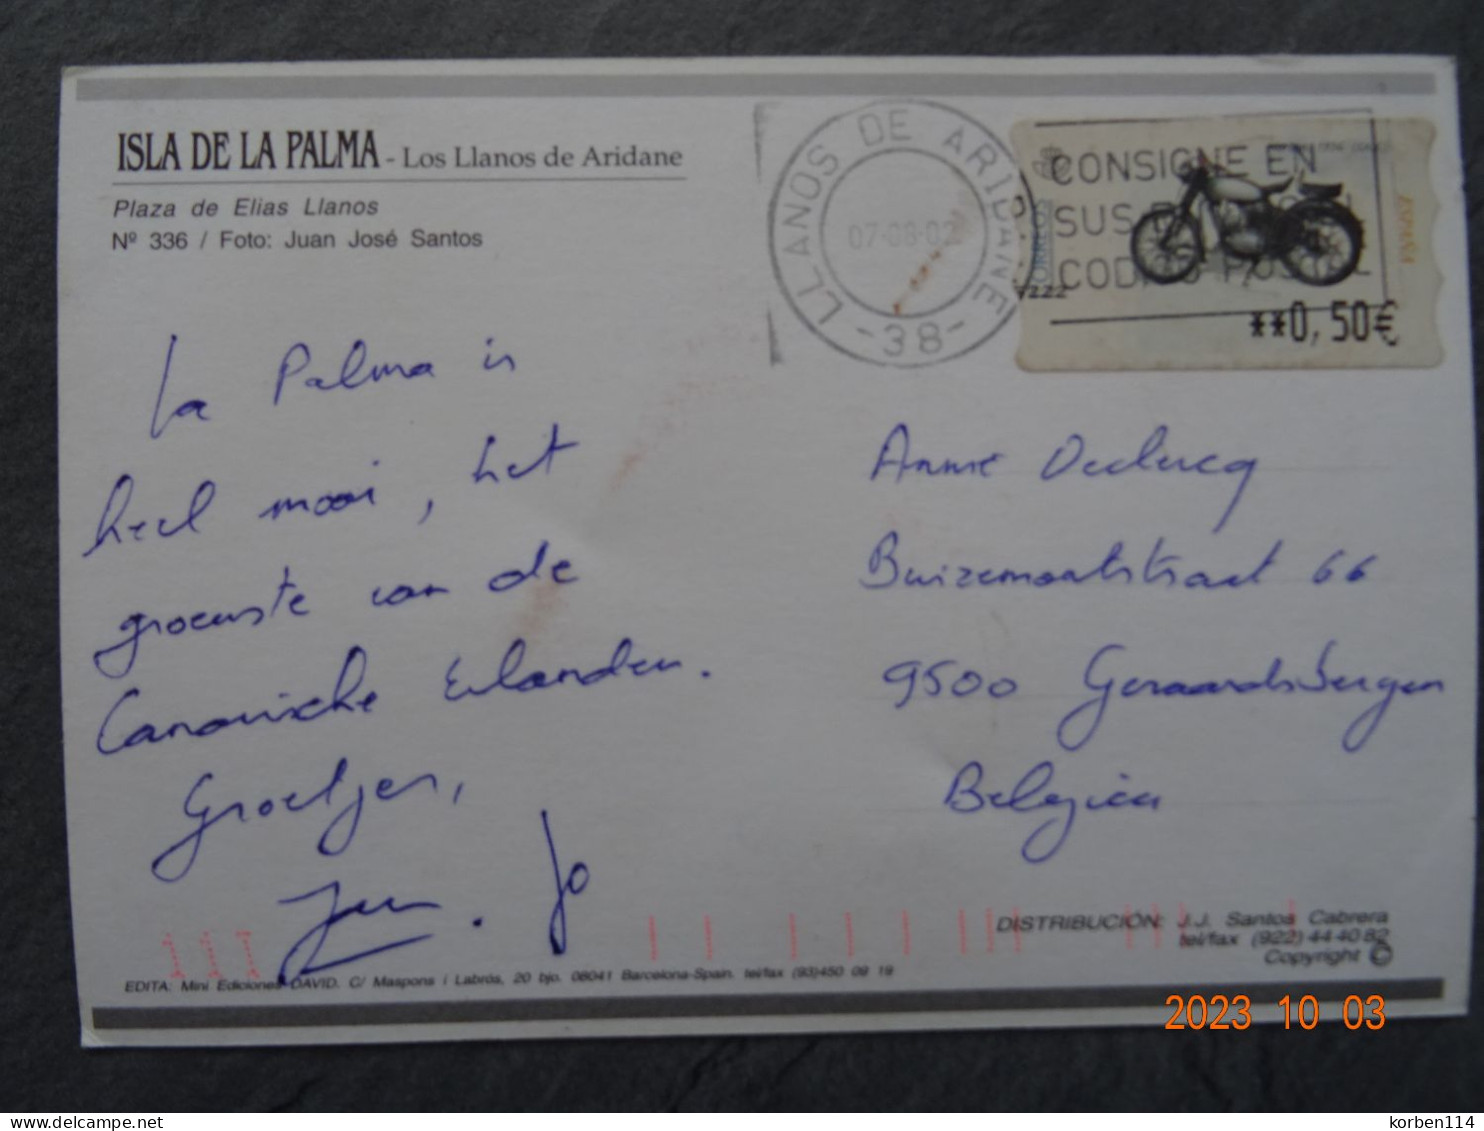 ISLA DE LA PALMA - Los Llanos de Aridane
Plaza de Elias Llanos
Nº 336 / Foto: Juan José Santos
LLANOS DE ARIDANE
07-08-02
-38-
CONSIGNE EN
SUS
CODIGO POSTAL
CORREOS
ESPAÑA
**0,50€
La Palma is
heel mooi, het
groenste van de
Canarische Eilanden.
Groetjes,
Jo
Anne Declercq
Buizemontstraat 66
9500 Geraardsbergen
Belgica
DISTRIBUCIÓN: J.J. Santos Cabrera
tel/fax (922) 44 40 82
Copyright ©
EDITA: Mini Ediciones DAVID. C/ Maspons i Labrós, 20 bjo. 08041 Barcelona-Spain. tel/fax (93)450 09 19
2023 10 03
korben114